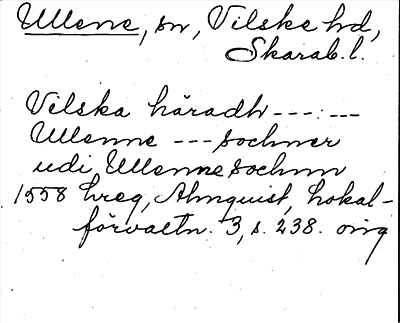 Ullene, sn, Vilske hd,
Skarab. l.
Vilska häradh ---:---
Ullenne --- sochner
udi Ullenne sochnn
1558 hreg, Almquist, Lokal-
förvaltn. 3, s. 238. orig